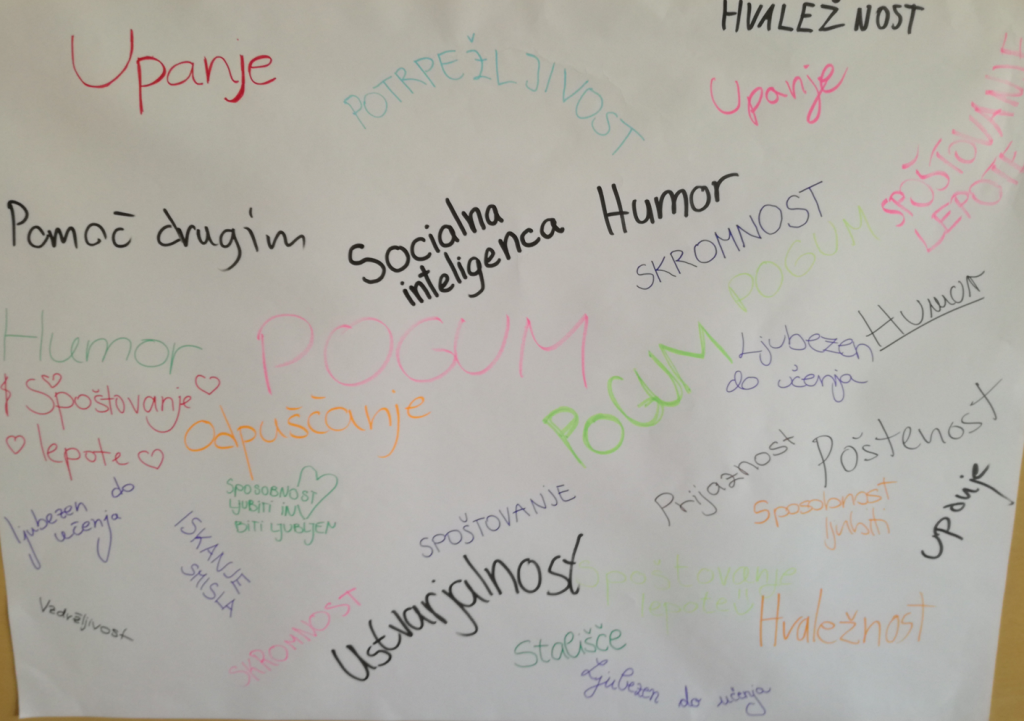 HVALEŽNOST
Upanje
POTRPEŽLJIVOST
Upanje
SPOŠTOVANJE
LEPOTE
Pomoč drugim
Socialna
inteligenca
Humor
SKROMNOST
POGUM
Humor
POGUM
POGUM
Ljubezen
do učenja
Humor
Spoštovanje
lepote
Odpuščanje
Prijaznost
Poštenost
SPOSOBNOST
LJUBITI IN
BITI LJUBLJEN
Sposobnost
ljubiti
upanje
ljubezen do
učenja
ISKANJE
SMISLA
SPOŠTOVANJE
Ustvarjalnost
Spoštovanje
lepote
Vzdržljivost
SKROMNOST
Stališče
Hvaležnost
Ljubezen do učenja